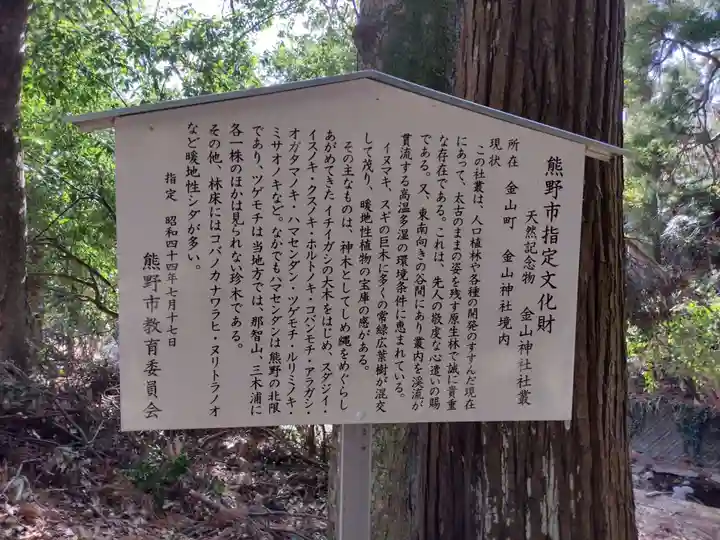 熊野市指定文化財
天然記念物　金山神社社叢
所在　金山町　金山神社境内
現状
この社叢は、人口植林や各種の開発のすすんだ現在
にあって、太古のままの姿を残す原生林で誠に貴重
な存在である。これは、先人の敬虔な心遣いの賜
である。又、東南向きの谷間にあり叢内を渓流が
貫流する高温多湿の環境条件に恵まれている。
イヌマキ、スギの巨木に多くの常緑広葉樹が混交
して茂り、暖地性植物の宝庫の感がある。
その主なものは、神木としてしめ縄をめぐらし
あがめてきたイチイガシの大木をはじめ、スダジイ・
イスノキ・クスノキ・ホルトノキ・コバンモチ・アラガシ・
オガタマノキ・ハマセンダン・ツゲモチ・ルリミノキ・
ミサオノキなど。なかでもハマセンダンは熊野の北限
であり、ツゲモチは当地方では、那智山、三木浦に
各一株のほかは見られない珍木である。
その他、林床にはコバノカナワラヒ・ヌリトラノオ
など暖地性シダが多い。
指定　昭和四十四年七月十七日
熊野市教育委員会